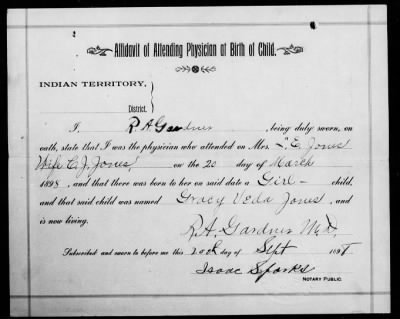 Affidavit of Attending Physician at Birth of Child.
INDIAN TERRITORY,
District.
I, R. A. Gardner being duly sworn, on
oath, state that I was the physician who attended on Mrs. E. Jones
Wife C. J. Jones, on the 20 day of March
and that there was born to her on said date a Girl child,
and that said child was named Gracy Veda Jones, and
is now living.
R. A. Gardner M.D.
Subscribed and sworn to before me this day of Sept
Isaac Sparks
NOTARY PUBLIC.